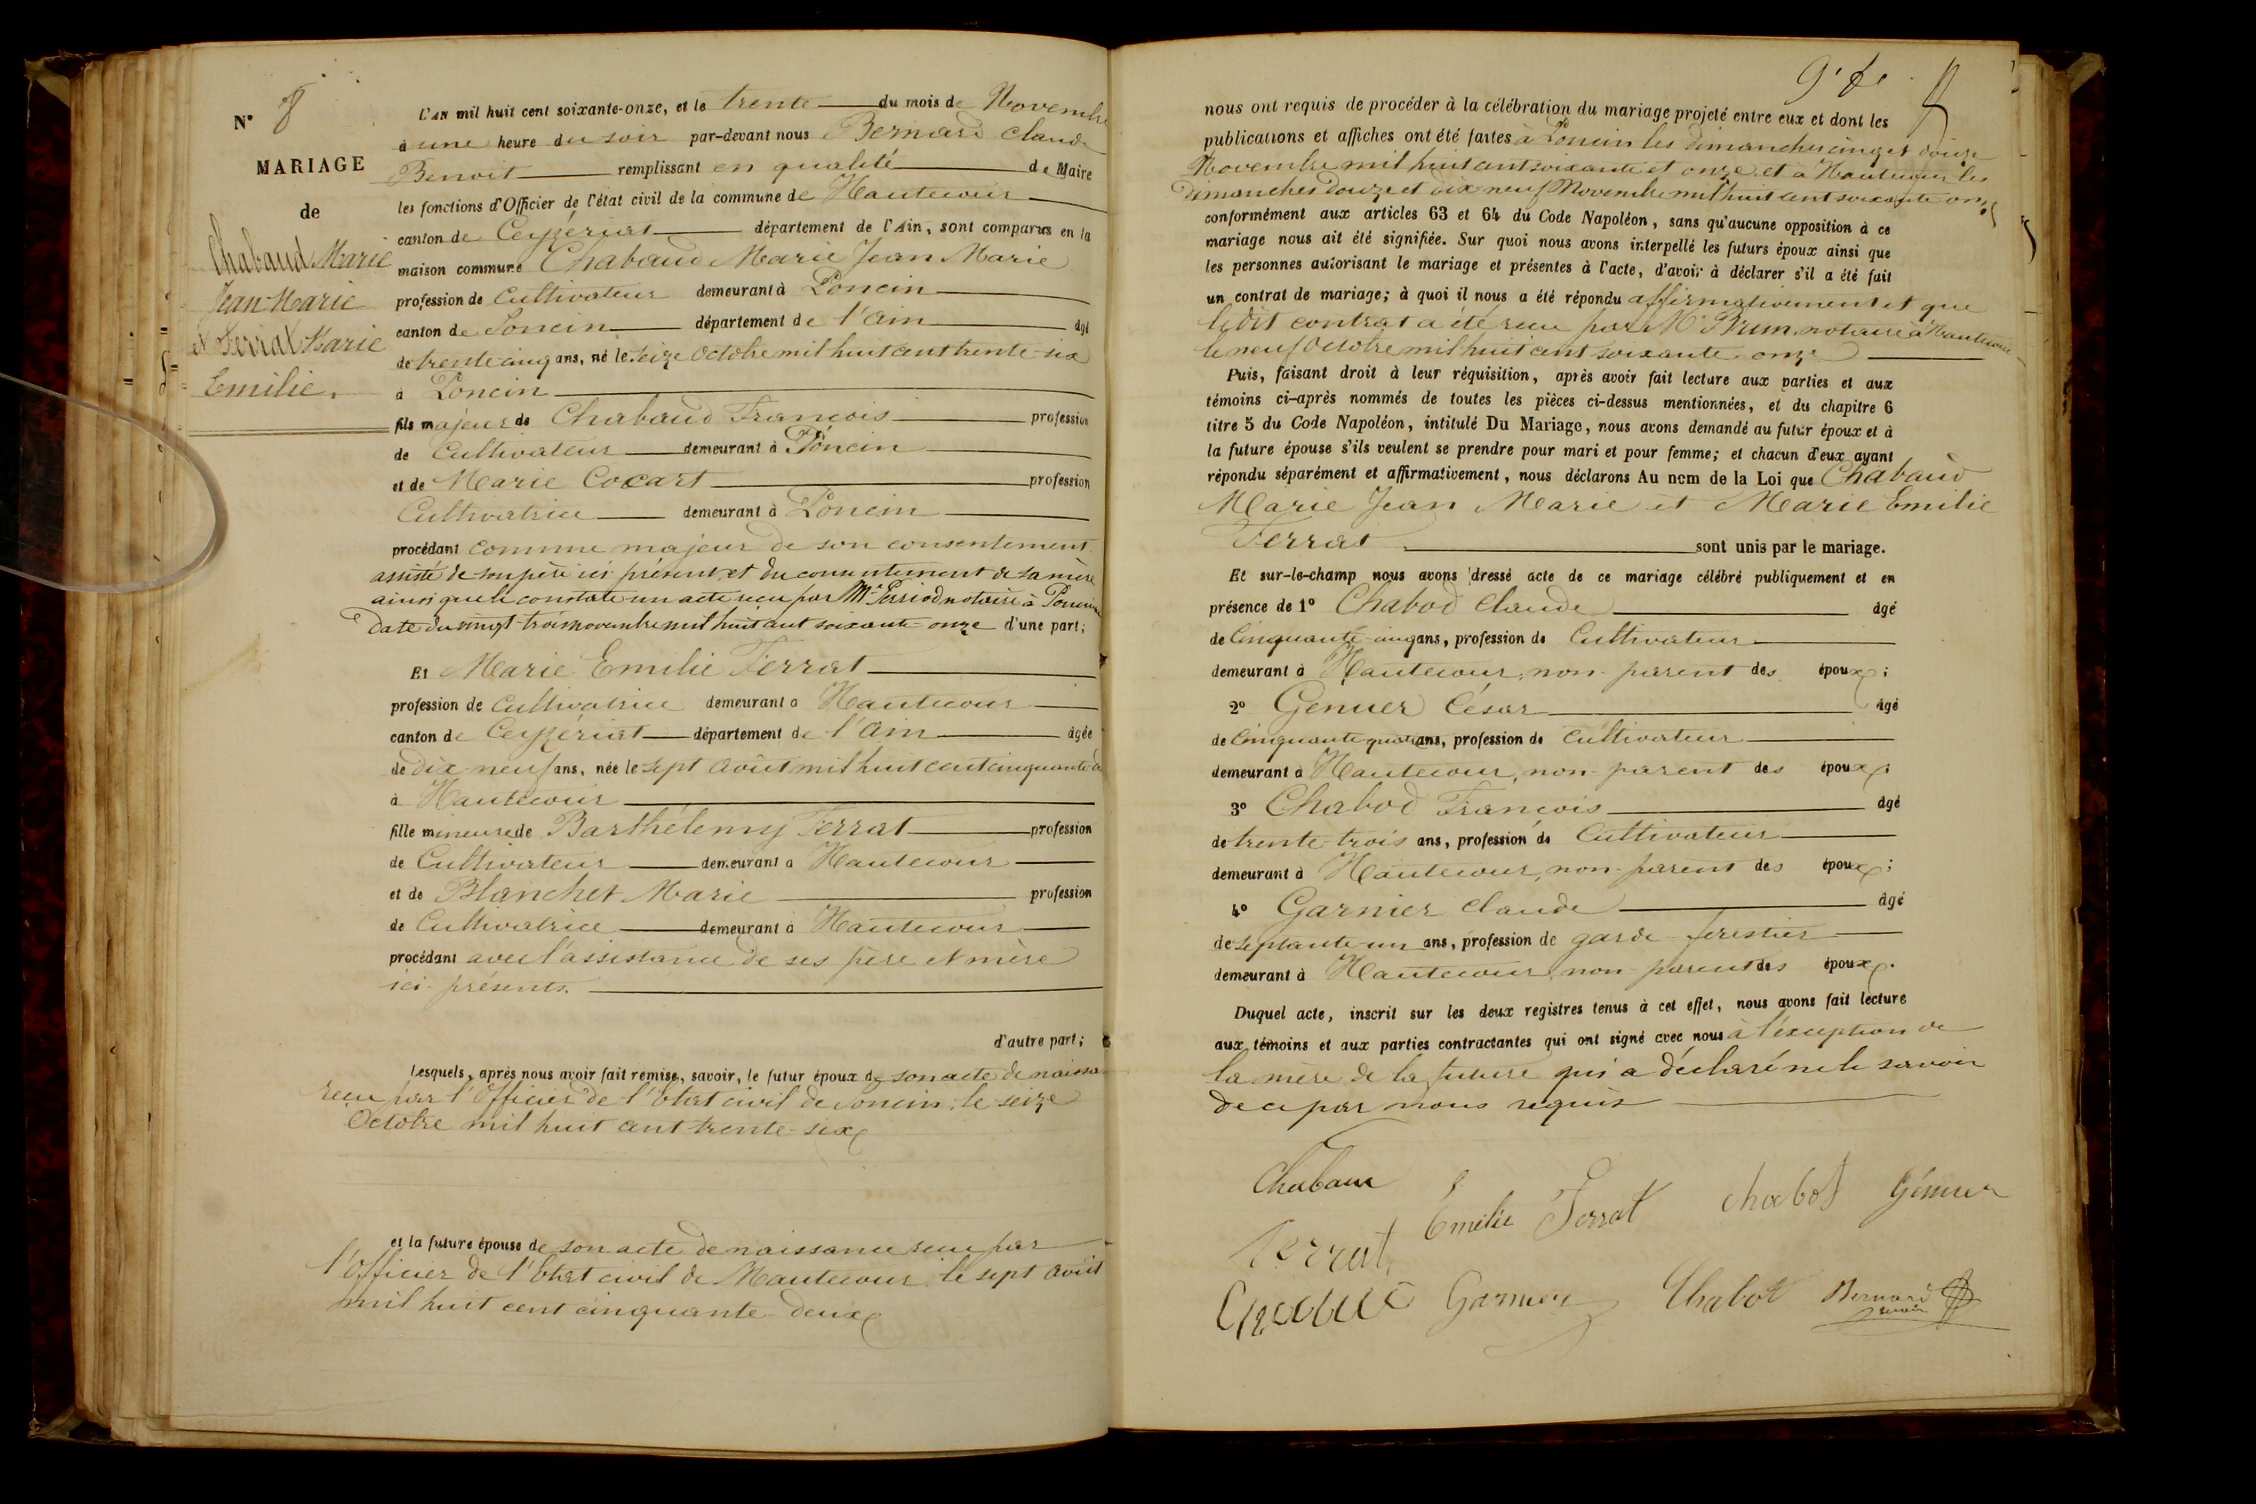 N° 8
MARIAGE
de
Chabaud Marie
Jean Marie
et Ferrat Marie
Emilie.
L'AN mil huit cent soixante-onze, et le trente du mois de Novembre
à une heure du soir par-devant nous Bernard Claude
Benoit remplissant en qualité de Maire
les fonctions d'Officier de l'état civil de la commune de Hautecour
canton de Ceyzériat département de l'Ain, sont comparus en la
maison commune Chabaud Marie Jean Marie
profession de Cultivateur demeurant à Poncin
canton de Poncin département de l'Ain âgé
de trente cinq ans, né le seize Octobre mil huit cent trente-six
à Poncin
fils majeur de Chabaud François profession
de Cultivateur demeurant à Poncin
et de Marie Cocart profession
Cultivatrice demeurant à Poncin
procédant comme majeur de son consentement
assisté de son père ici présent, et du consentement de sa mère
ainsi que le constate un acte reçu par Me Perriod notaire à Poncin
date du vingt-trois novembre mil huit cent soixante-onze d'une part;
Et Marie Emilie Ferrat
profession de Cultivatrice demeurant à Hautecour
canton de Ceyzériat département de l'Ain âgée
de dix-neuf ans, née le sept Août mil huit cent cinquante-
à Hautecour
fille mineure de Barthélemy Ferrat profession
de Cultivateur demeurant à Hautecour
et de Blanchet Marie profession
de Cultivatrice demeurant à Hautecour
procédant avec l'assistance de ses père et mère
ici présents.
d'autre part;
Lesquels, après nous avoir fait remise, savoir, le futur époux de son acte de naissa
reçu par l'Officier de l'Etat civil de Poncin, le seize
Octobre mil huit cent trente-six
et la future épouse de son acte de naissance reçu par
l'Officier de l'Etat civil de Hautecour, le sept Août
mil huit cent cinquante-deux
nous ont requis de procéder à la célébration du mariage projeté entre eux et dont les
publications et affiches ont été faites à Poncin les dimanches cinq et douze
Novembre mil huit cent soixante et onze et à Hautecour les
dimanches douze et dix neuf Novembre mil huit cent soixante onze
conformément aux articles 63 et 64 du Code Napoléon, sans qu'aucune opposition à ce
mariage nous ait été signifiée. Sur quoi nous avons interpellé les futurs époux ainsi que
les personnes autorisant le mariage et présentes à l'acte, d'avoir à déclarer s'il a été fait
un contrat de mariage; à quoi il nous a été répondu affirmativement et que
le dit contrat a été reçu par Me Brun, notaire à Hautecour
le neuf Octobre mil huit cent soixante-onze
Puis, faisant droit à leur réquisition, après avoir fait lecture aux parties et aux
témoins ci-après nommés de toutes les pièces ci-dessus mentionnées, et du chapitre 6
titre 5 du Code Napoléon, intitulé Du Mariage, nous avons demandé au futur époux et à
la future épouse s'ils veulent se prendre pour mari et pour femme; et chacun d'eux ayant
répondu séparément et affirmativement, nous déclarons Au nom de la Loi que Chabaud
Marie Jean Marie et Marie Emilie
Ferrat sont unis par le mariage.
Et sur-le-champ nous avons dressé acte de ce mariage célébré publiquement et en
présence de 1° Chabod Claude âgé
de Cinquante-cinq ans, profession de Cultivateur
demeurant à Hautecour, non-parent des époux;
2° Genuer César âgé
de Cinquante quatre ans, profession de Cultivateur
demeurant à Hautecour, non-parent des époux;
3° Chabod François âgé
de trente-trois ans, profession de Cultivateur
demeurant à Hautecour, non-parent des époux;
4° Garnier Claude âgé
de septante-un ans, profession de garde-forestier
demeurant à Hautecour, non-parent des époux.
Duquel acte, inscrit sur les deux registres tenus à cet effet, nous avons fait lecture
aux témoins et aux parties contractantes qui ont signé avec nous à l'exception de
la mère de la future qui a déclaré ne le savoir
de ce par nous requis
Chabaud
Emilie Ferrat Chabod Génuer
Ferrat
Garnier Chabot Bernard